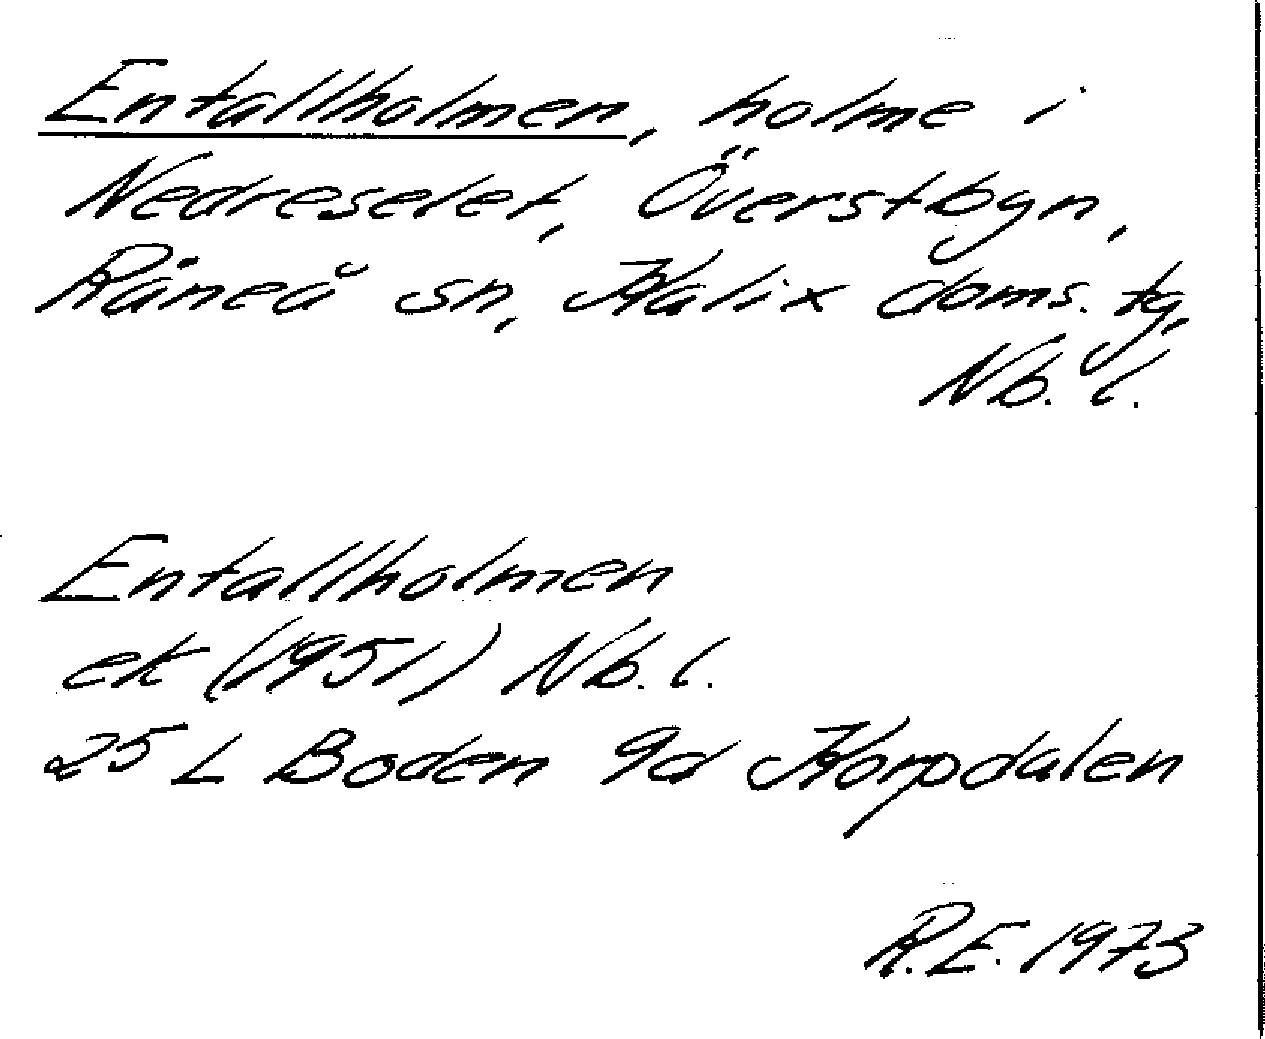 Entallholmen, holme i
Nedreselet, Överstbyn,
Råneå sn, Kalix doms. tg,
Nb. l.
Entallholmen
ek (1951) Nb. l.
25 L Boden 9d Korpdalen
R.E. 1973